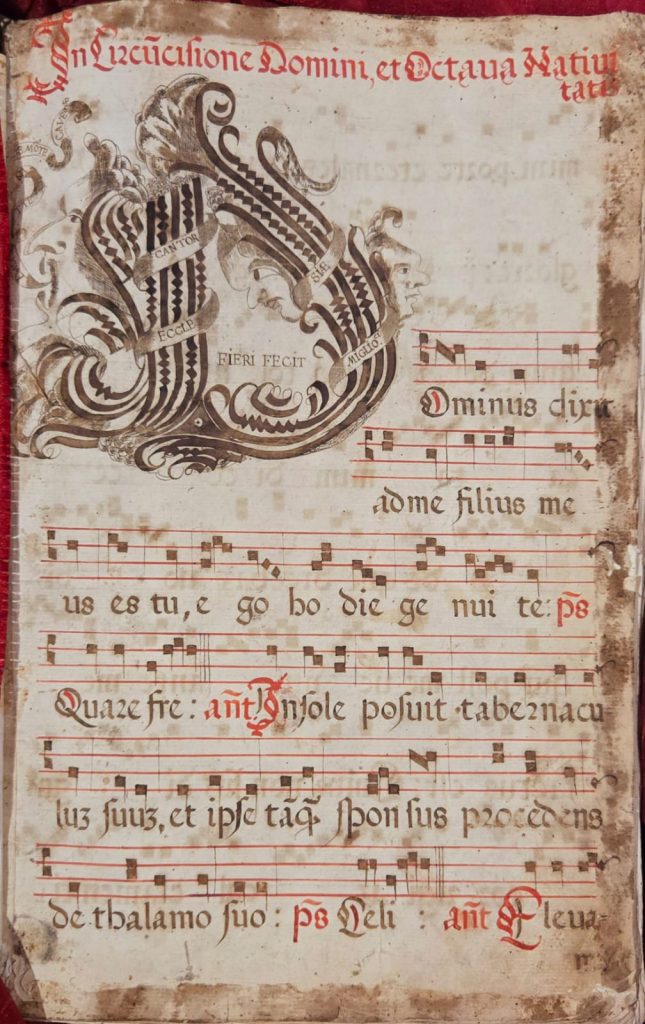 In Circūcisione Domini, et Octaua Natiui
tatis
CANTOR
ECCLE
SIÆ
FIERI FECIT
MIGLIO
Ominus dixit
ad me filius me
us es tu, e go ho die ge nui te: ps̄
Quare fre: an̄t In sole posuit tabernacu-
luʒ suuʒ, et ipse tāq̄ spon sus procedens
de thalamo suo: ps̄ Celi: an̄t Eleua-